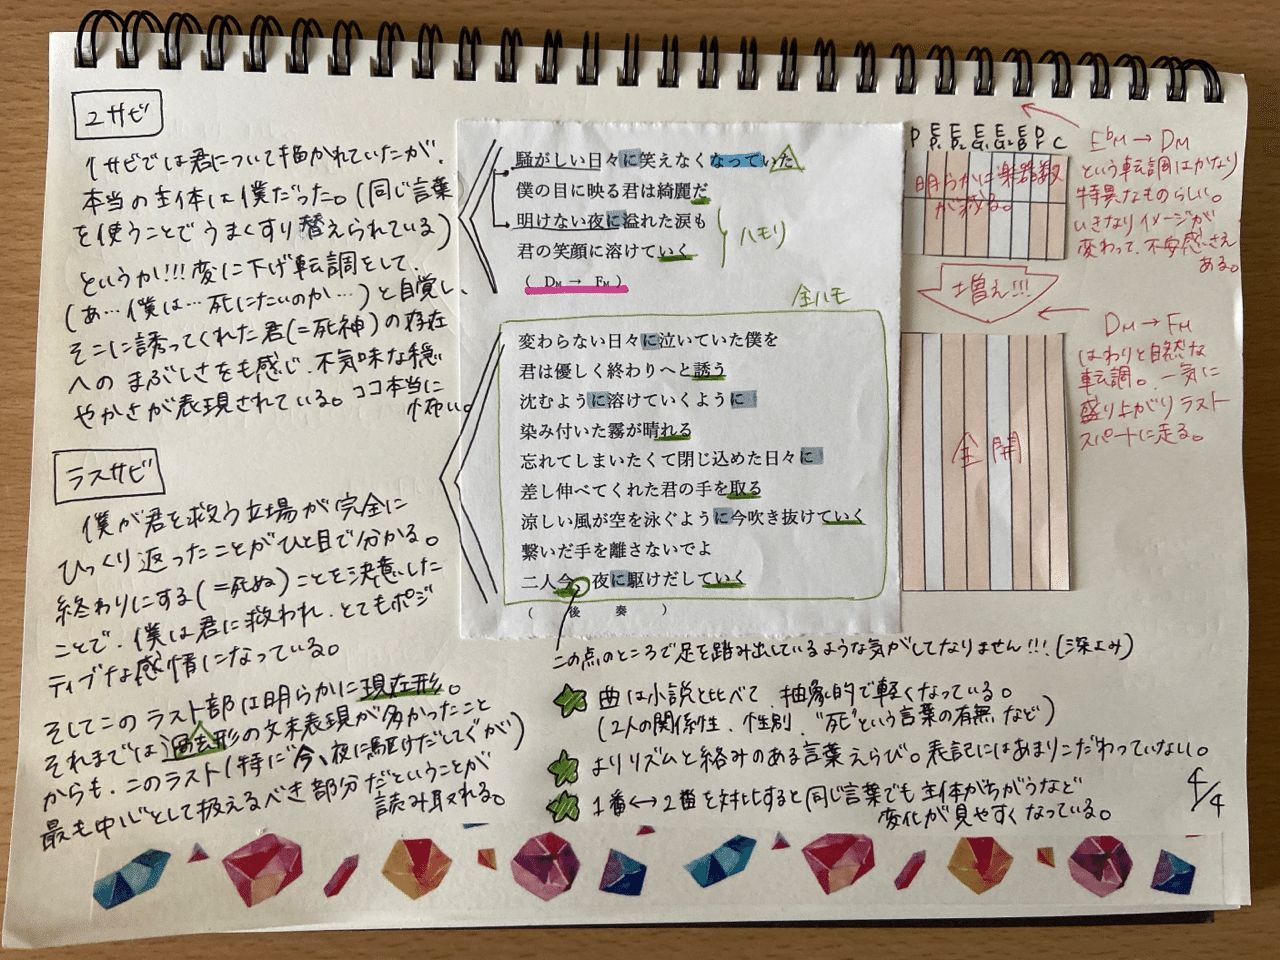 2サビ
1サビでは君について描かれていたが、
本当の主体は僕だった。(同じ言葉
を使うことでうまくすり替えられている)
というか!!!変に下げ転調をして、
(あ…僕は…死にたいのか…)と自覚し、
そこに誘ってくれた君(=死神)の存在
へのまぶしさをも感じ、不気味な穏
やかさが表現されている。ココ本当に
怖い。
ラスサビ
僕が君を救う立場が完全に
ひっくり返ったことがひと目で分かる。
終わりにする(=死ぬ)ことを決意した
ことで、僕は君に救われ、とてもポジ
ティブな感情になっている。
そしてこのラスト部は明らかに現在形。
それまでは過去形の文末表現が多かったこと
からも、このラスト(特に今、夜に駆けだしてくが)
最も中心として扱えるべき部分だということが
読み取れる。
騒がしい日々に笑えなくなっていた
僕の目に映る君は綺麗だ
明けない夜に溢れた涙も
君の笑顔に溶けていく
ハモリ
(DM → FM)
全ハモ
変わらない日々に泣いていた僕を
君は優しく終わりへと誘う
沈むように溶けていくように
染み付いた霧が晴れる
忘れてしまいたくて閉じ込めた日々に
差し伸べてくれた君の手を取る
涼しい風が空を泳ぐように今吹き抜けていく
繋いだ手を離さないでよ
二人今、夜に駆けだしていく
(後奏)
P E P1 E P2 E G1 E G2 E B D P C
明らかに楽器数
が減る。
増え!!!
全開
E♭M → DM
という転調はかなり
特異なものらしい。
いきなりイメージが
変わって、不安感さえ
ある。
DM → FM
はわりと自然な
転調。一気に
盛り上がりラスト
スパートに走る。
この点のところで足を踏み出しているような気がしてなりません!!!(深よみ)
曲は小説と比べて、抽象的で軽くなっている。
(2人の関係性、性別、"死"という言葉の有無など)
よりリズムと絡みのある言葉えらび。表記にはあまりこだわっていない。
1番↔2番を対比すると同じ言葉でも主体がちがうなど
変化が見やすくなっている。
4/4